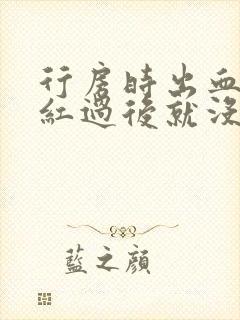 行房時出血
紅過後就沒
藍之顏